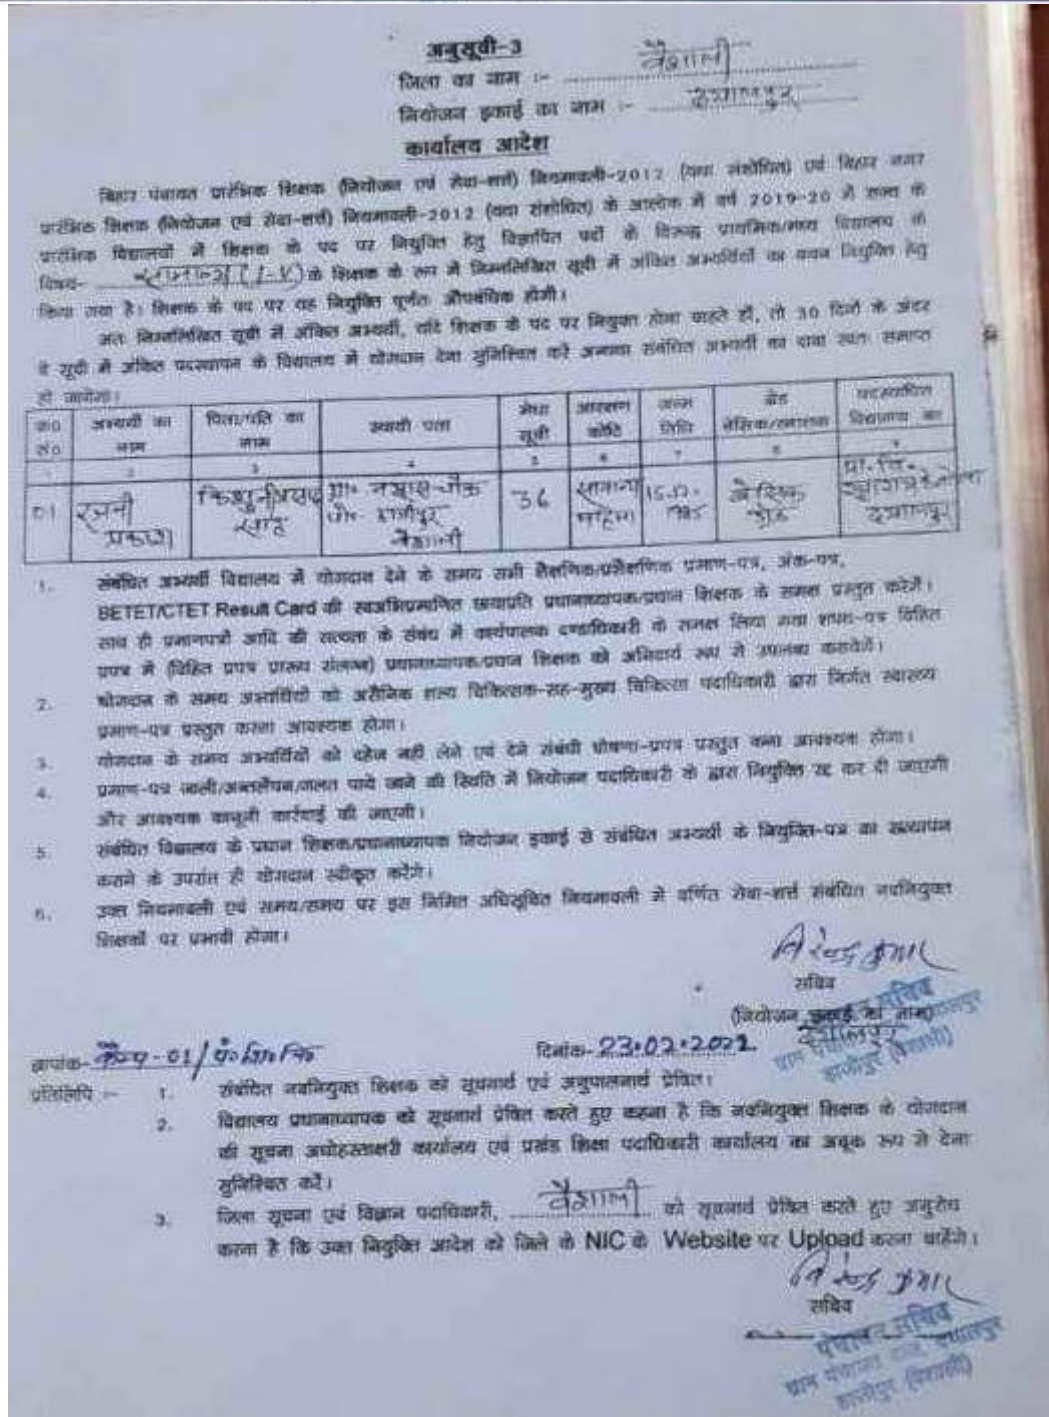 अनुसूची-3
जिला का नाम :- वैशाली
नियोजन इकाई का नाम :- दयालपुर
कार्यालय आदेश
बिहार पंचायत प्रारंभिक शिक्षक (नियोजन एवं सेवा-शर्त्त) नियमावली-2012 (यथा संशोधित) एवं बिहार नगर
प्रारंभिक शिक्षक (नियोजन एवं सेवा-शर्त्त) नियमावली-2012 (यथा संशोधित) के आलोक में वर्ष 2019-20 में राज्य के
प्रारंभिक विद्यालयों में शिक्षक के पद पर नियुक्ति हेतु विज्ञापित पदों के विरूद्ध प्राथमिक/मध्य विद्यालय के
विषय- सामान्य (I-V) के शिक्षक के रूप में निम्नलिखित सूची में अंकित अभ्यर्थियों का चयन नियुक्ति हेतु
किया गया है। शिक्षक के पद पर यह नियुक्ति पूर्णतः औपबंधिक होगी।
अतः निम्नलिखित सूची में अंकित अभ्यर्थी, यदि शिक्षक के पद पर नियुक्त होना चाहते हों, तो 30 दिनों के अंदर
वे सूची में अंकित पदस्थापन के विद्यालय में योगदान देना सुनिश्चित करें अन्यथा संबंधित अभ्यर्थी का दावा स्वतः समाप्त
हो जायेगा।
क्र0 सं0 अभ्यर्थी का नाम पिता/पति का नाम स्थायी पता मेधा सूची आरक्षण कोटि जन्म तिथि ग्रेड बेसिक/स्नातक पदस्थापित विद्यालय का
1 2 3 4 5 6 7 8 9
01 रजनी प्रकाश साह ग्रा०- चौक पो०- हाजीपुर वैशाली 36 सामान्य महिला 15-12-1985 बेसिक ग्रेड प्रा. वि. दयालपुर
1. संबंधित अभ्यर्थी विद्यालय में योगदान देने के समय सभी शैक्षणिक/प्रशैक्षणिक प्रमाण-पत्र, अंक-पत्र,
BETET/CTET Result Card की स्वअभिप्रमाणित छायाप्रति प्रधानाध्यापक/प्रधान शिक्षक के समक्ष प्रस्तुत करेंगे।
साथ ही प्रमाणपत्रों आदि की सत्यता के संबंध में कार्यपालक दण्डाधिकारी के समक्ष लिया गया शपथ-पत्र विहित
प्रपत्र में (विहित प्रपत्र प्रारूप संलग्न) प्रधानाध्यापक/प्रधान शिक्षक को अनिवार्य रूप से उपलब्ध करायेंगे।
2. योगदान के समय अभ्यर्थियों को असैनिक शल्य चिकित्सक-सह-मुख्य चिकित्सा पदाधिकारी द्वारा निर्गत स्वास्थ्य
प्रमाण-पत्र प्रस्तुत करना आवश्यक होगा।
3. योगदान के समय अभ्यर्थियों को दहेज नहीं लेने एवं देने संबंधी घोषणा-प्रपत्र प्रस्तुत कना आवश्यक होगा।
4. प्रमाण-पत्र जाली/अन्तर्लेपन/गलत पाये जाने की स्थिति में नियोजन पदाधिकारी के द्वारा नियुक्ति रद्द कर दी जाएगी
और आवश्यक कानूनी कार्रवाई की जाएगी।
5. संबंधित विद्यालय के प्रधान शिक्षक/प्रधानाध्यापक नियोजन इकाई से संबंधित अभ्यर्थी के नियुक्ति-पत्र का सत्यापन
कराने के उपरांत ही योगदान स्वीकृत करेंगे।
6. उक्त नियमावली एवं समय/समय पर इस निमित अधिसूचित नियमावली में वर्णित सेवा-शर्त्त संबंधित नवनियुक्त
शिक्षकों पर प्रभावी होगा।
विरेन्द्र कुमार
सचिव
(नियोजन इकाई का नाम)
दयालपुर
सचिव
हाजीपुर (वैशाली)
ज्ञापांक- कैम्प-01/ दिनांक- 23.02.2022
प्रतिलिपि :- 1. संबंधित नवनियुक्त शिक्षक को सूचनार्थ एवं अनुपालनार्थ प्रेषित।
2. विद्यालय प्रधानाध्यापक को सूचनार्थ प्रेषित करते हुए कहना है कि नवनियुक्त शिक्षक के योगदान
की सूचना अधोहस्ताक्षरी कार्यालय एवं प्रखंड शिक्षा पदाधिकारी कार्यालय का अचूक रूप से देना
सुनिश्चित करें।
3. जिला सूचना एवं विज्ञान पदाधिकारी, वैशाली को सूचनार्थ प्रेषित करते हुए अनुरोध
करना है कि उक्त नियुक्ति आदेश को जिले के NIC के Website पर Upload करना चाहेंगे।
विरेन्द्र कुमार
सचिव
पंचायत सचिव
ग्राम पंचायत राज दयालपुर
हाजीपुर (वैशाली)